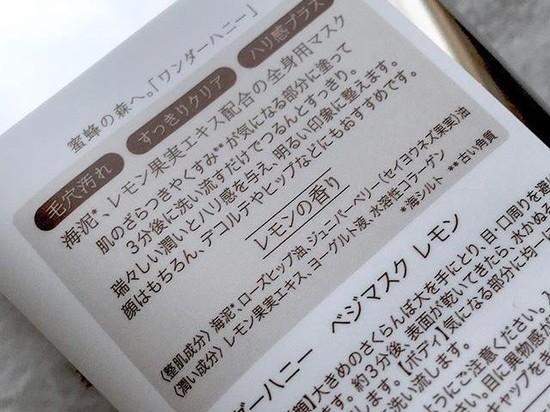 蜜蜂の森へ。「ワンダーハニー」
毛穴汚れ
すっきりクリア
ハリ感プラス
海泥*、レモン果実エキス配合の全身用マスク
肌のざらつきやくすみ**が気になる部分に塗って
3分後に洗い流すだけでつるんとすっきり。
瑞々しい潤いとハリ感を与え、明るい印象に整えます。
顔はもちろん、デコルテやヒップなどにもおすすめです。
レモンの香り
〈整肌成分〉海泥*、ローズヒップ油、ジューパーベリー(セイヨウネズ果実)油
〈潤い成分〉レモン果実エキス、ヨーグルト液、水溶性コラーゲン
*海シルト **古い角質
ダーハニー ベジマスク レモン
大きめのさくらんぼ大を手にとり、目・口周りを避
ます。約3分後、表面が乾いてきたら、水かぬ
します。【ボディ】気になる部分に均一
洗い流します。
ようにご注意ください。